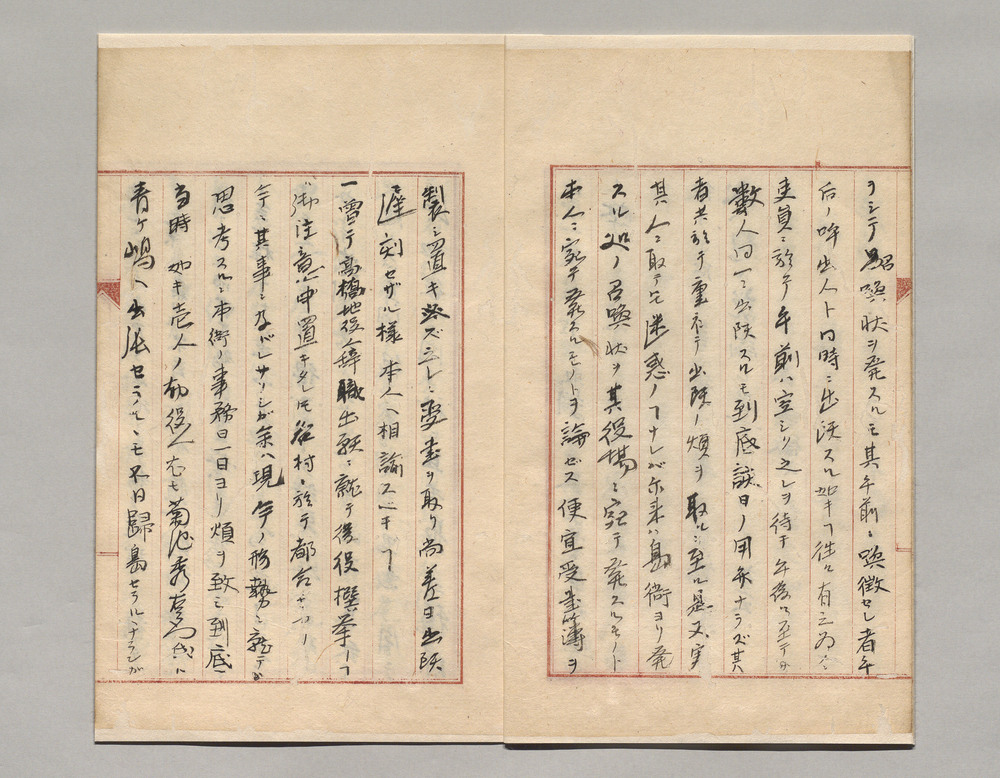 ヲシテ召喚状ヲ発スルモ其午前ニ喚徴セシ者午
后ノ呼出人ト同時ニ出頭スル如キ ヿ往々有之為ニ
吏員ニ於テ午前ハ空シク之レヲ待チ午後ニ至テ
数人同一ニ出頭スルモ到底該日ノ用弁ナラズ其
者共於テ重ネテ出頭ノ煩ヲ取ルニ至ル是又実
其人ニ取テモ迷惑ノ ヿナレバ尓来ハ島衙ヨリ発
スル処ノ召喚状ヲ其役場ニ宛テ発スルモノト
本人ニ宛テ発スルモノトヲ論ゼズ便宜受書簿ヲ
製シ置キ必ズ之レニ受書ヲ取リ尚差日出頭
遅刻セザル様本人ヘ相諭スベキ ヿ
一曽テ高橋地役人辞職出願ニ就テ後役撰挙ノ ヿ
御注意申置キタレ𪜈各村ニ於テ都合モ
今ニ其事ニ及バレザリシガ余ハ現今ノ形勢ニ就テ
思考スルニ本衙ノ事務日一日ヨリ煩ヲ致シ到底
当時如キ壱人ノ地役人尤モ菊池秀右エ門氏ニ
青ヶ嶋ヘ出張セラルヽモ不日歸島セラルヽナランガ